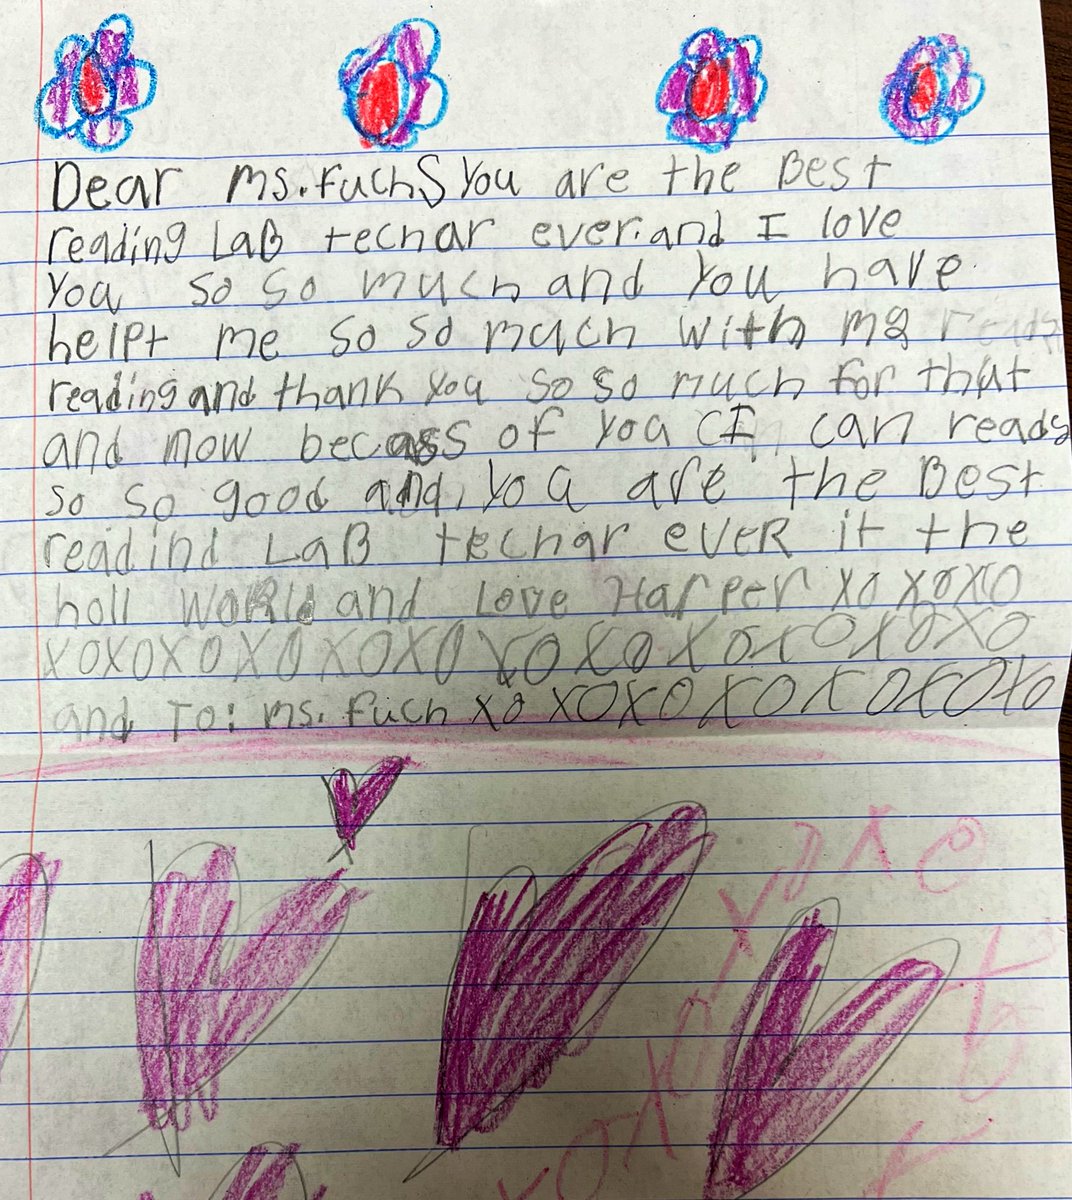 Dear Ms. Fuchs You are the Best
reading LaB techar ever. and I love
You so so much and you have
helpt me so so much with my
reading and thank you so so much for that
and now becass of you I can reads
so so good and, you are the Best
readind LaB techar eveR it the
holl WoRld and Love Harper xo xoxo
xoxoxoxoxoxoxoxoxoxoxoxoxo
and To: Ms. Fuch xoxoxoxoxoxoxoxo